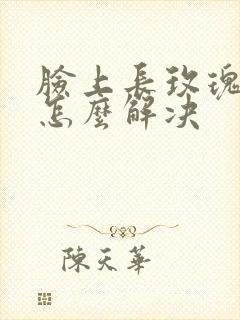 臉上長玫瑰
怎麼解决
陳天華